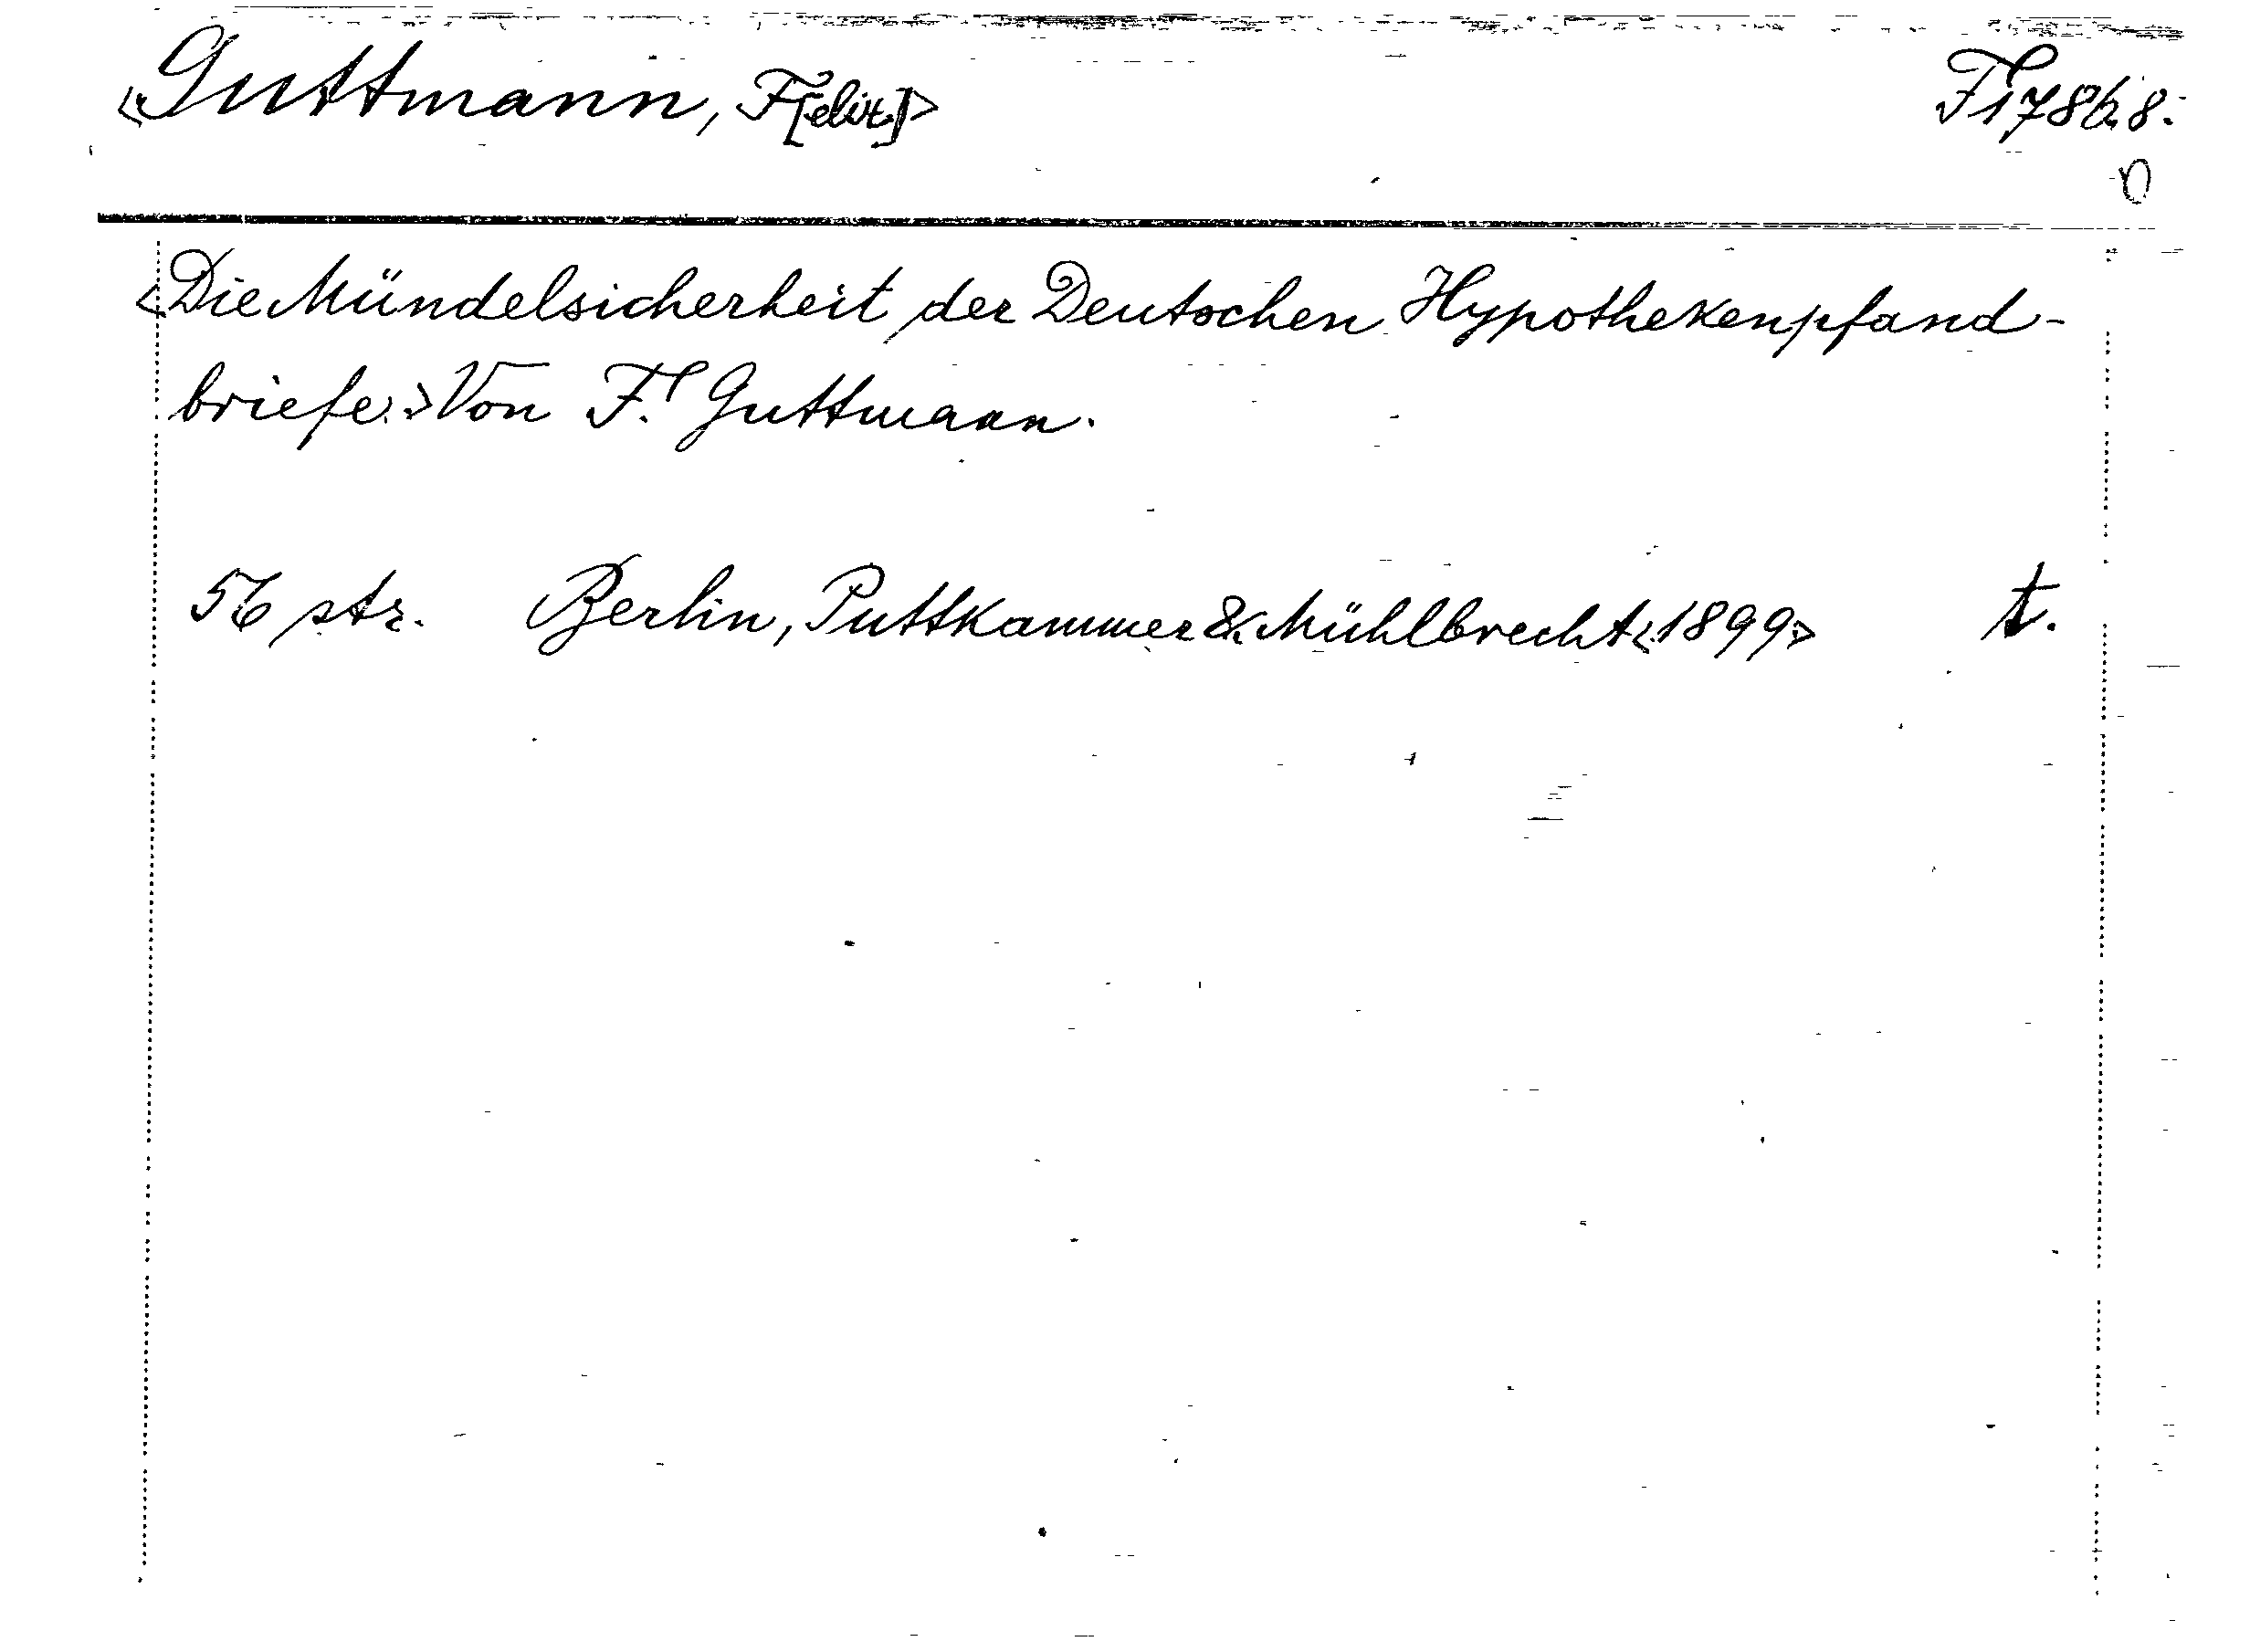 <Guttmann, F[elix]>
F1786.8.
n
<Die Mündelsicherheit der Deutschen Hypothekenpfand-
briefe.> Von F. Guttmann.
56 str. Berlin, Puttkammer & Mühlbrecht <1899> t.